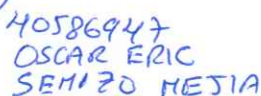 40586947
OSCAR ERIC
SEMIZO MEJIA